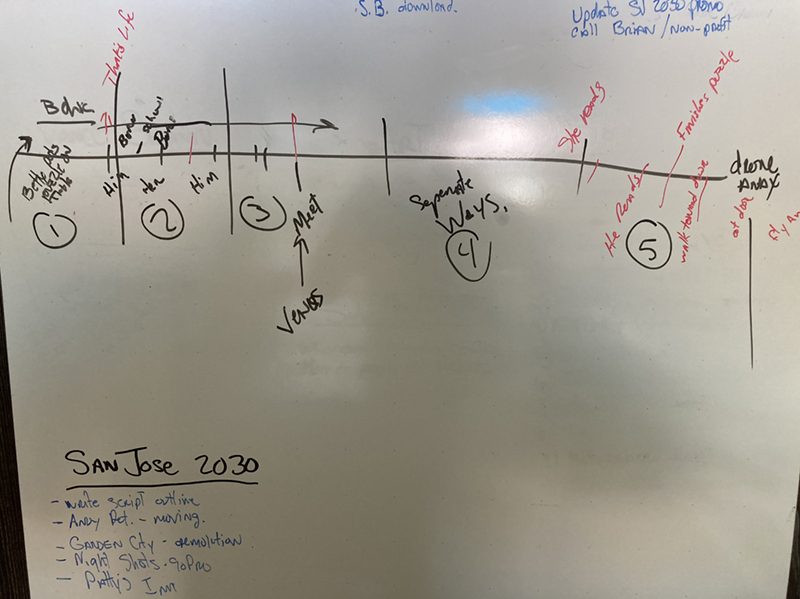 S.B. download.
Update SV 2030 promo
call Brian / non-profit
That's Life
Him
Her
Him
Meet
Venos
Seperate
Ways.
She Reads
He Reads
Finishes puzzle
walk toward drone
drone
away
at door
1
2
3
4
5
San Jose 2030
- write script outline
- Andy Pet. - moving.
- Garden City - demolition
- Night Shots - goPro
- Pretty's Inn